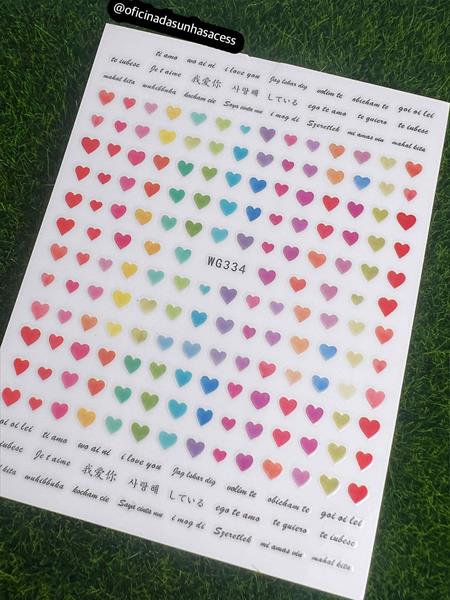 @oficinadasunhasacess
ti amo wo ai ni i love you Jag lskar dig volim te obicham te goi oi lei
te iubesc Je t'aime 我爱你 사랑해 している ego te amo te quiero te iubesc
mahal kita wuhibbuka kocham cie Saya cinta mu i mog di Szeretlek mi amas vin mahal kita
WG334
oi oi lei ti amo wo ai ni i love you Jag lskar dig volim te obicham te goi oi lei
iubesc Je t'aime 我爱你 사랑해 している ego te amo te quiero te iubesc
kita wuhibbuka kocham cie Saya cinta mu i mog di Szeretlek mi amas vin mahal kita